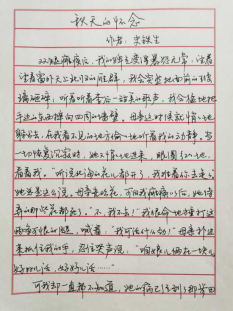 秋天的怀念
作者：史铁生
双腿瘫痪后，我的脾气变得暴怒无常，望着
望着窗外天上北归的雁群，我会突然把面前的玻
璃砸碎，听着听着李谷一甜美的歌声，我会猛地把
手边的东西摔向四周的墙壁。母亲这时候就悄悄地
躲出去，在我看不见的地方偷偷地听着我的动静。当
一切恢复沉寂时，她又悄悄地进来，眼圈红红的，
看着我。"听说北海的花儿都开了，我推着你去走走。"
她总是这么说。母亲喜欢花，可自我瘫痪以后，她侍
弄的那些花都死了。"不，我不去！"我狠命地捶打这
两条可恨的腿，喊着，"我可活什么劲！"母亲扑过
来抓住我的手，忍住哭声说："咱娘儿俩在一块儿，
好好儿活，好好儿活……"
可我却一直都不知道，她的病已经到了那步田